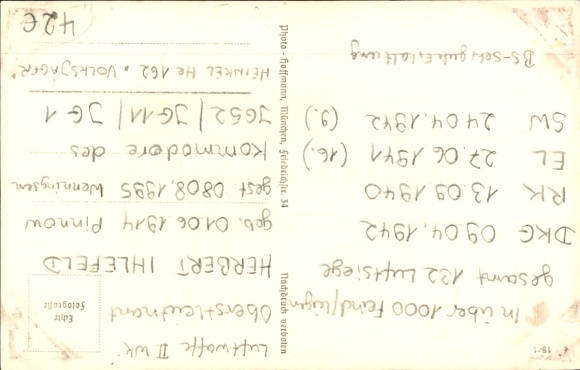 In über 1000 Feindflügen
gesamt 132 Luftsiege
DKG 09.04.1942
RK 13.09.1940
EL 27.06.1941 (16.)
SW 24.04.1942 (9.)
BS-Sehr gute Erhaltung
Nachdruck verboten
Photo-Hoffmann, München, Friedrichstr. 34
Luftwaffe II WK
Oberstleutnant
Echte
Fotografie
HERBERT IHLEFELD
geb. 01.06.1914 Pinnow
gest. 08.08.1995 Wenningsen
Kommodore des
JG52/JG11/JG1
HEINKEL He 162 "VOLKSJÄGER"
42€